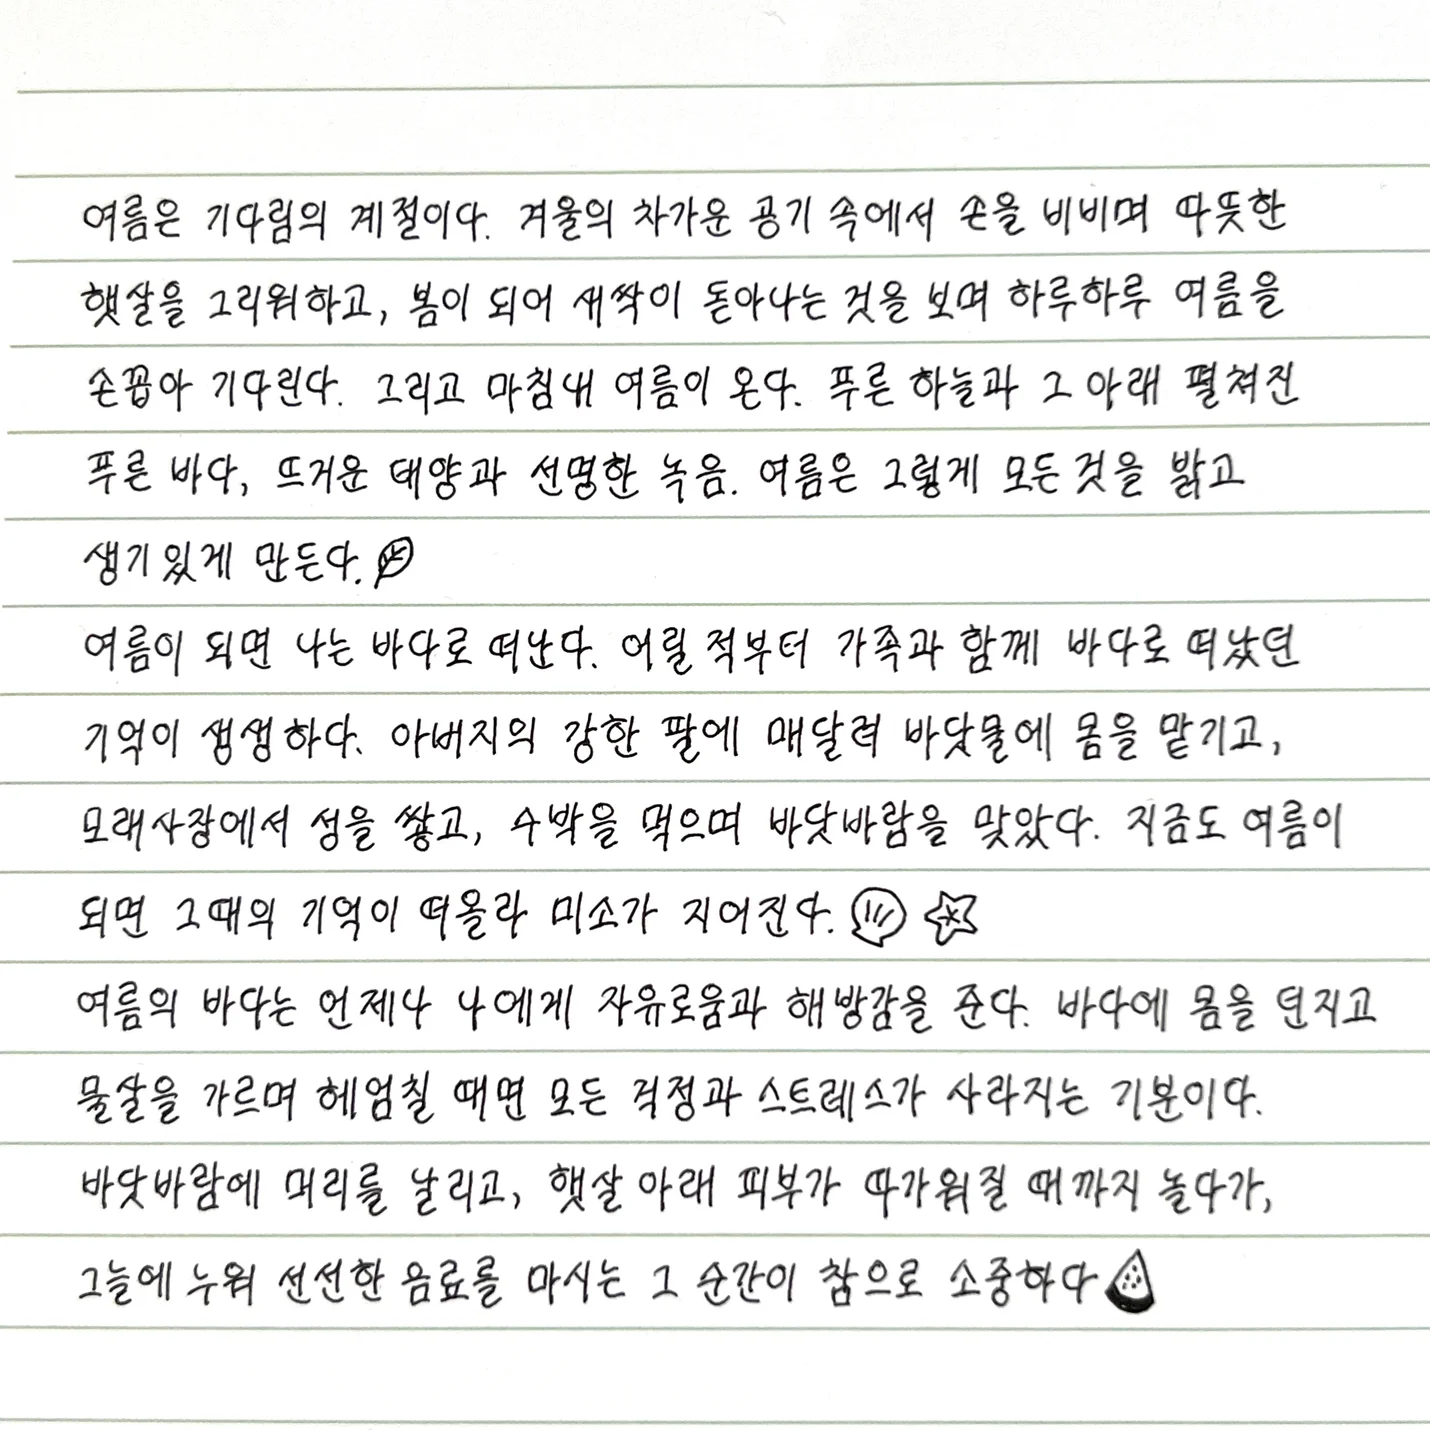 여름은 기다림의 계절이다. 겨울의 차가운 공기 속에서 손을 비비며 따뜻한
햇살을 그리워하고, 봄이 되어 새싹이 돋아나는 것을 보며 하루하루 여름을
손꼽아 기다린다. 그리고 마침내 여름이 온다. 푸른 하늘과 그 아래 펼쳐진
푸른 바다, 뜨거운 태양과 선명한 녹음. 여름은 그렇게 모든 것을 밝고
생기있게 만든다.
여름이 되면 나는 바다로 떠난다. 어릴 적부터 가족과 함께 바다로 떠났던
기억이 생생하다. 아버지의 강한 팔에 매달려 바닷물에 몸을 맡기고,
모래사장에서 성을 쌓고, 수박을 먹으며 바닷바람을 맞았다. 지금도 여름이
되면 그때의 기억이 떠올라 미소가 지어진다.
여름의 바다는 언제나 나에게 자유로움과 해방감을 준다. 바다에 몸을 던지고
물살을 가르며 헤엄칠 때면 모든 걱정과 스트레스가 사라지는 기분이다.
바닷바람에 머리를 날리고, 햇살 아래 피부가 따가워질 때까지 놀다가,
그늘에 누워 선선한 음료를 마시는 그 순간이 참으로 소중하다